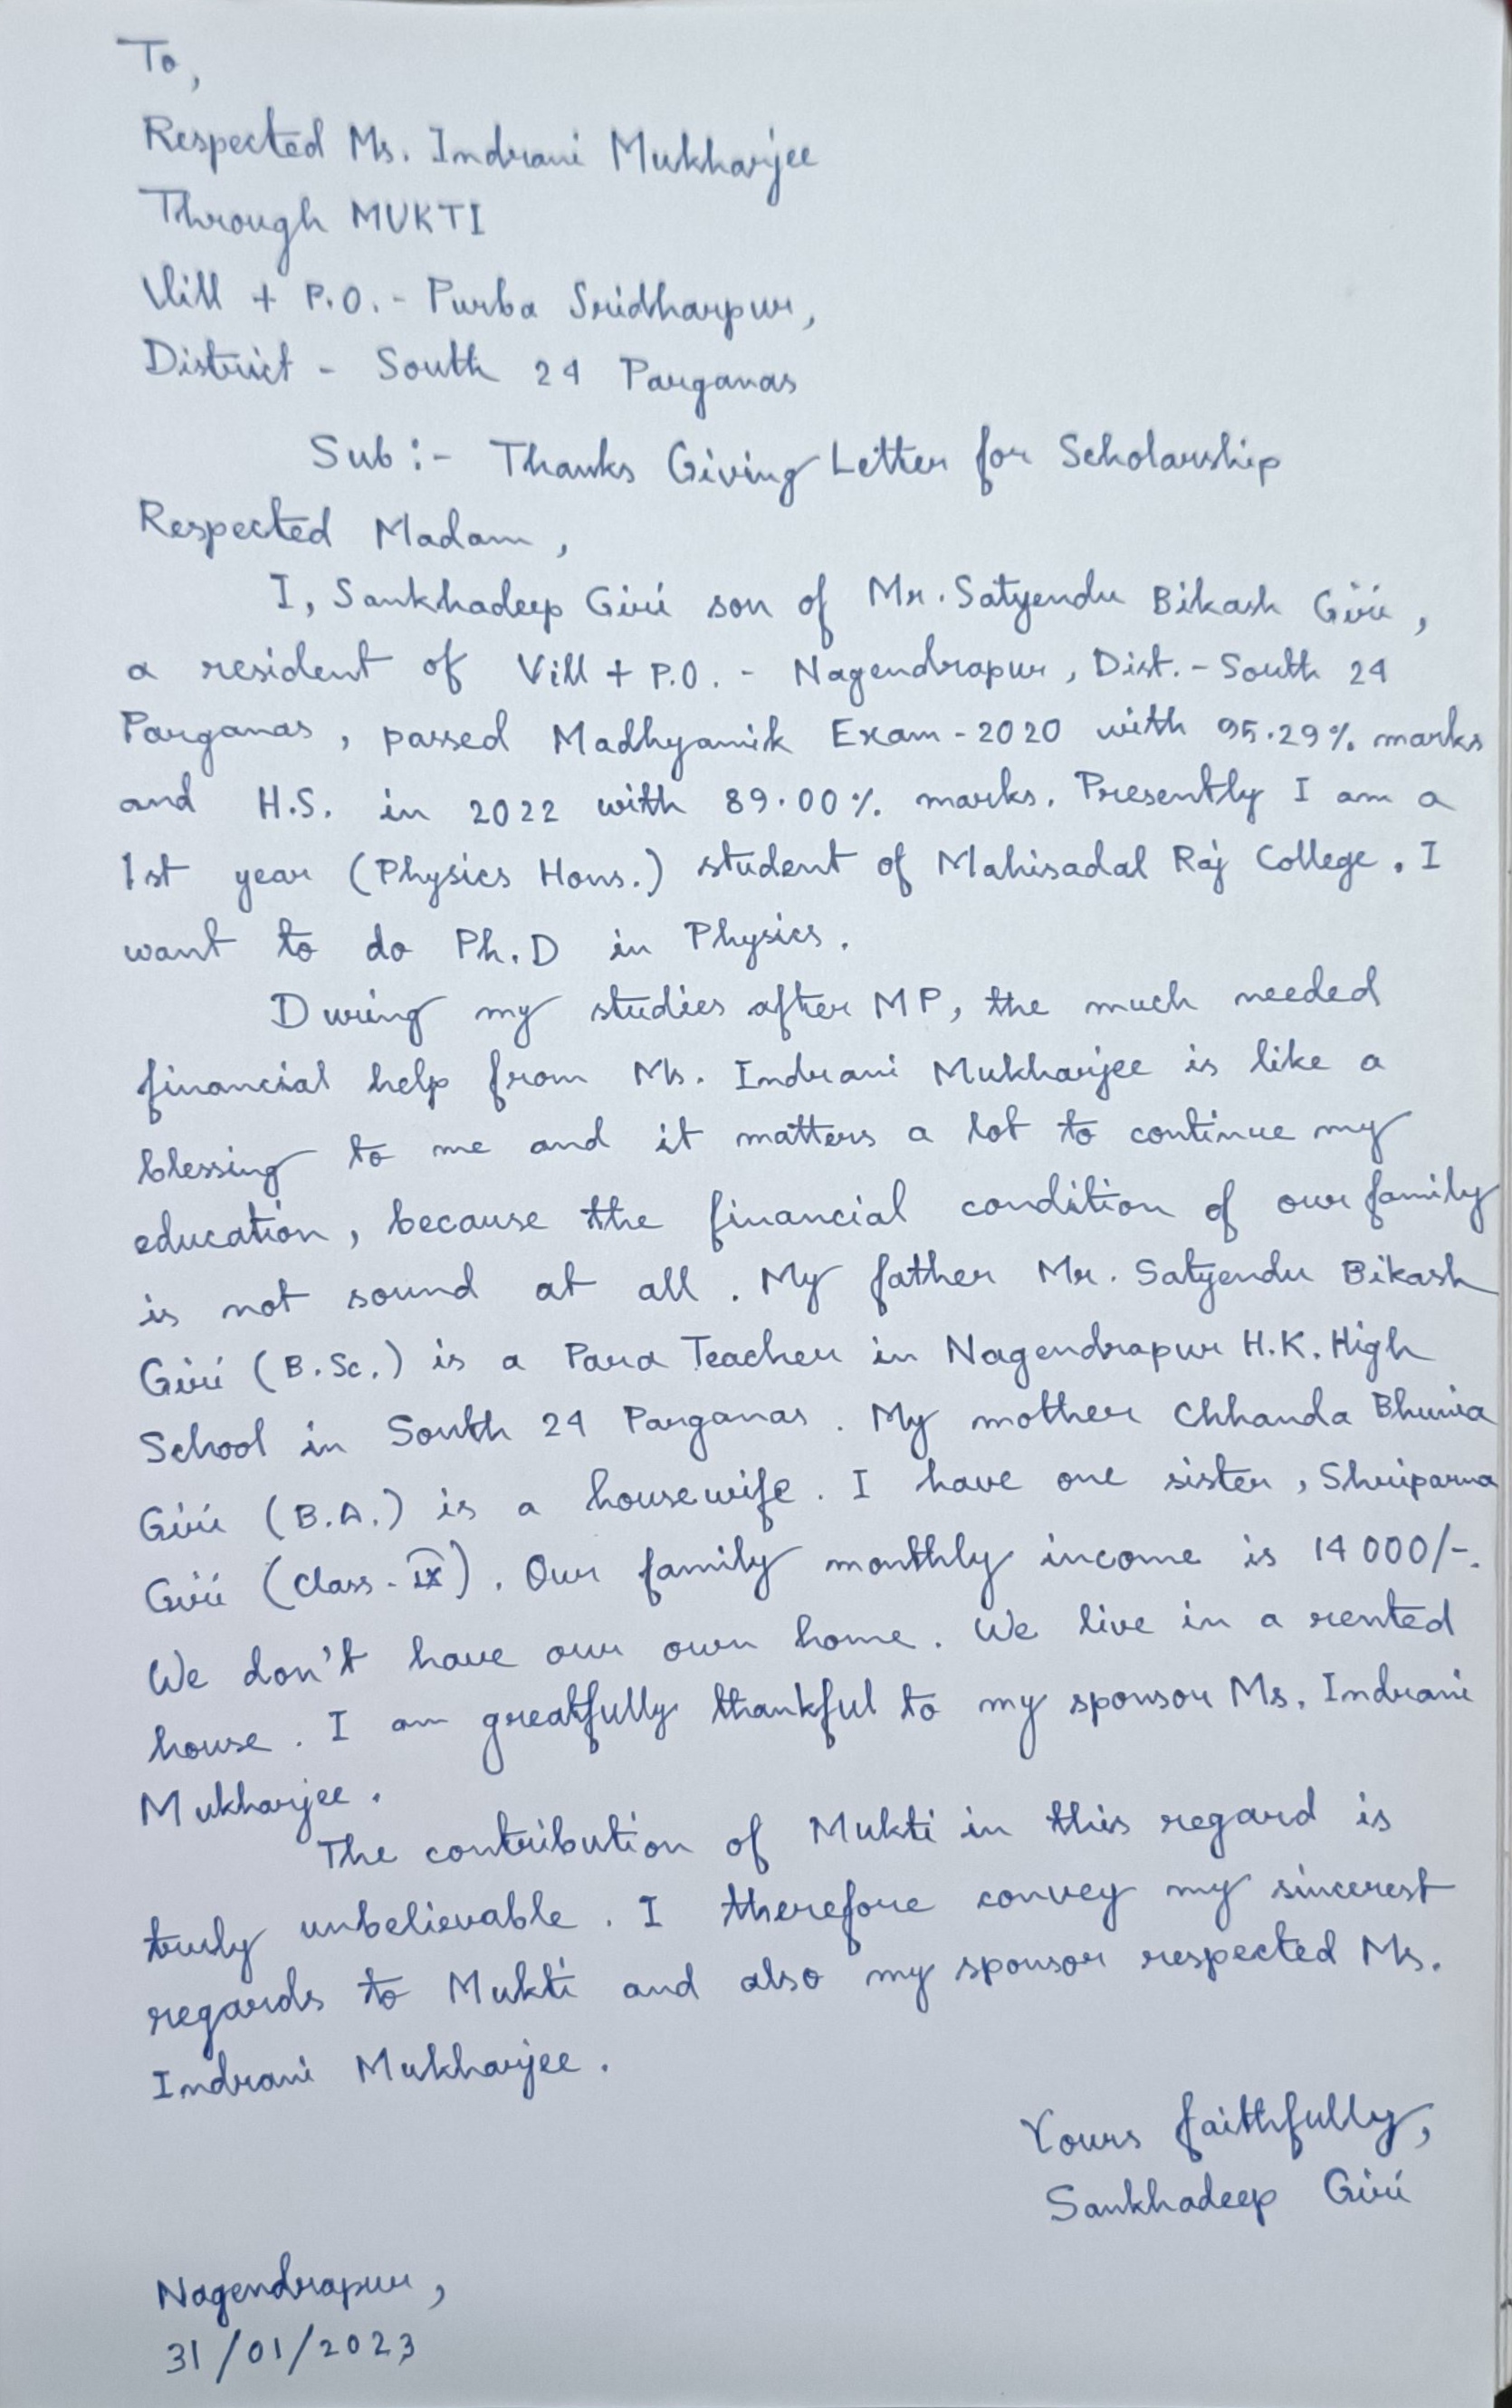 To,
Respected Ms. Indrani Mukharjee
Through MUKTI
Vill + P.O. - Purba Sridharpur,
District - South 24 Parganas
Sub :- Thanks Giving Letter for Scholarship
Respected Madam,
I, Sankhadeep Giri son of Mr. Satyendu Bikash Giri,
a resident of Vill + P.O. - Nagendrapur, Dist. - South 24
Parganas, passed Madhyamik Exam - 2020 with 95.29% marks
and H.S. in 2022 with 89.00% marks. Presently I am a
1st year (Physics Hons.) student of Mahisadal Raj College. I
want to do Ph.D in Physics.
During my studies after MP, the much needed
financial help from Ms. Indrani Mukharjee is like a
blessing to me and it matters a lot to continue my
education, because the financial condition of our family
is not sound at all. My father Mr. Satyendu Bikash
Giri (B.Sc.) is a Para Teacher in Nagendrapur H.K. High
School in South 24 Parganas. My mother Chhanda Bhunia
Giri (B.A.) is a housewife. I have one sister, Shriparna
Giri (Class - IX). Our family monthly income is 14000/-.
We don't have our own home. We live in a rented
house. I am greatfully thankful to my sponsor Ms. Indrani
Mukharjee.
The contribution of Mukti in this regard is
truly unbelievable. I therefore convey my sincerest
regards to Mukti and also my sponsor respected Ms.
Indrani Mukharjee.
Yours faithfully,
Sankhadeep Giri
Nagendrapur,
31/01/2023